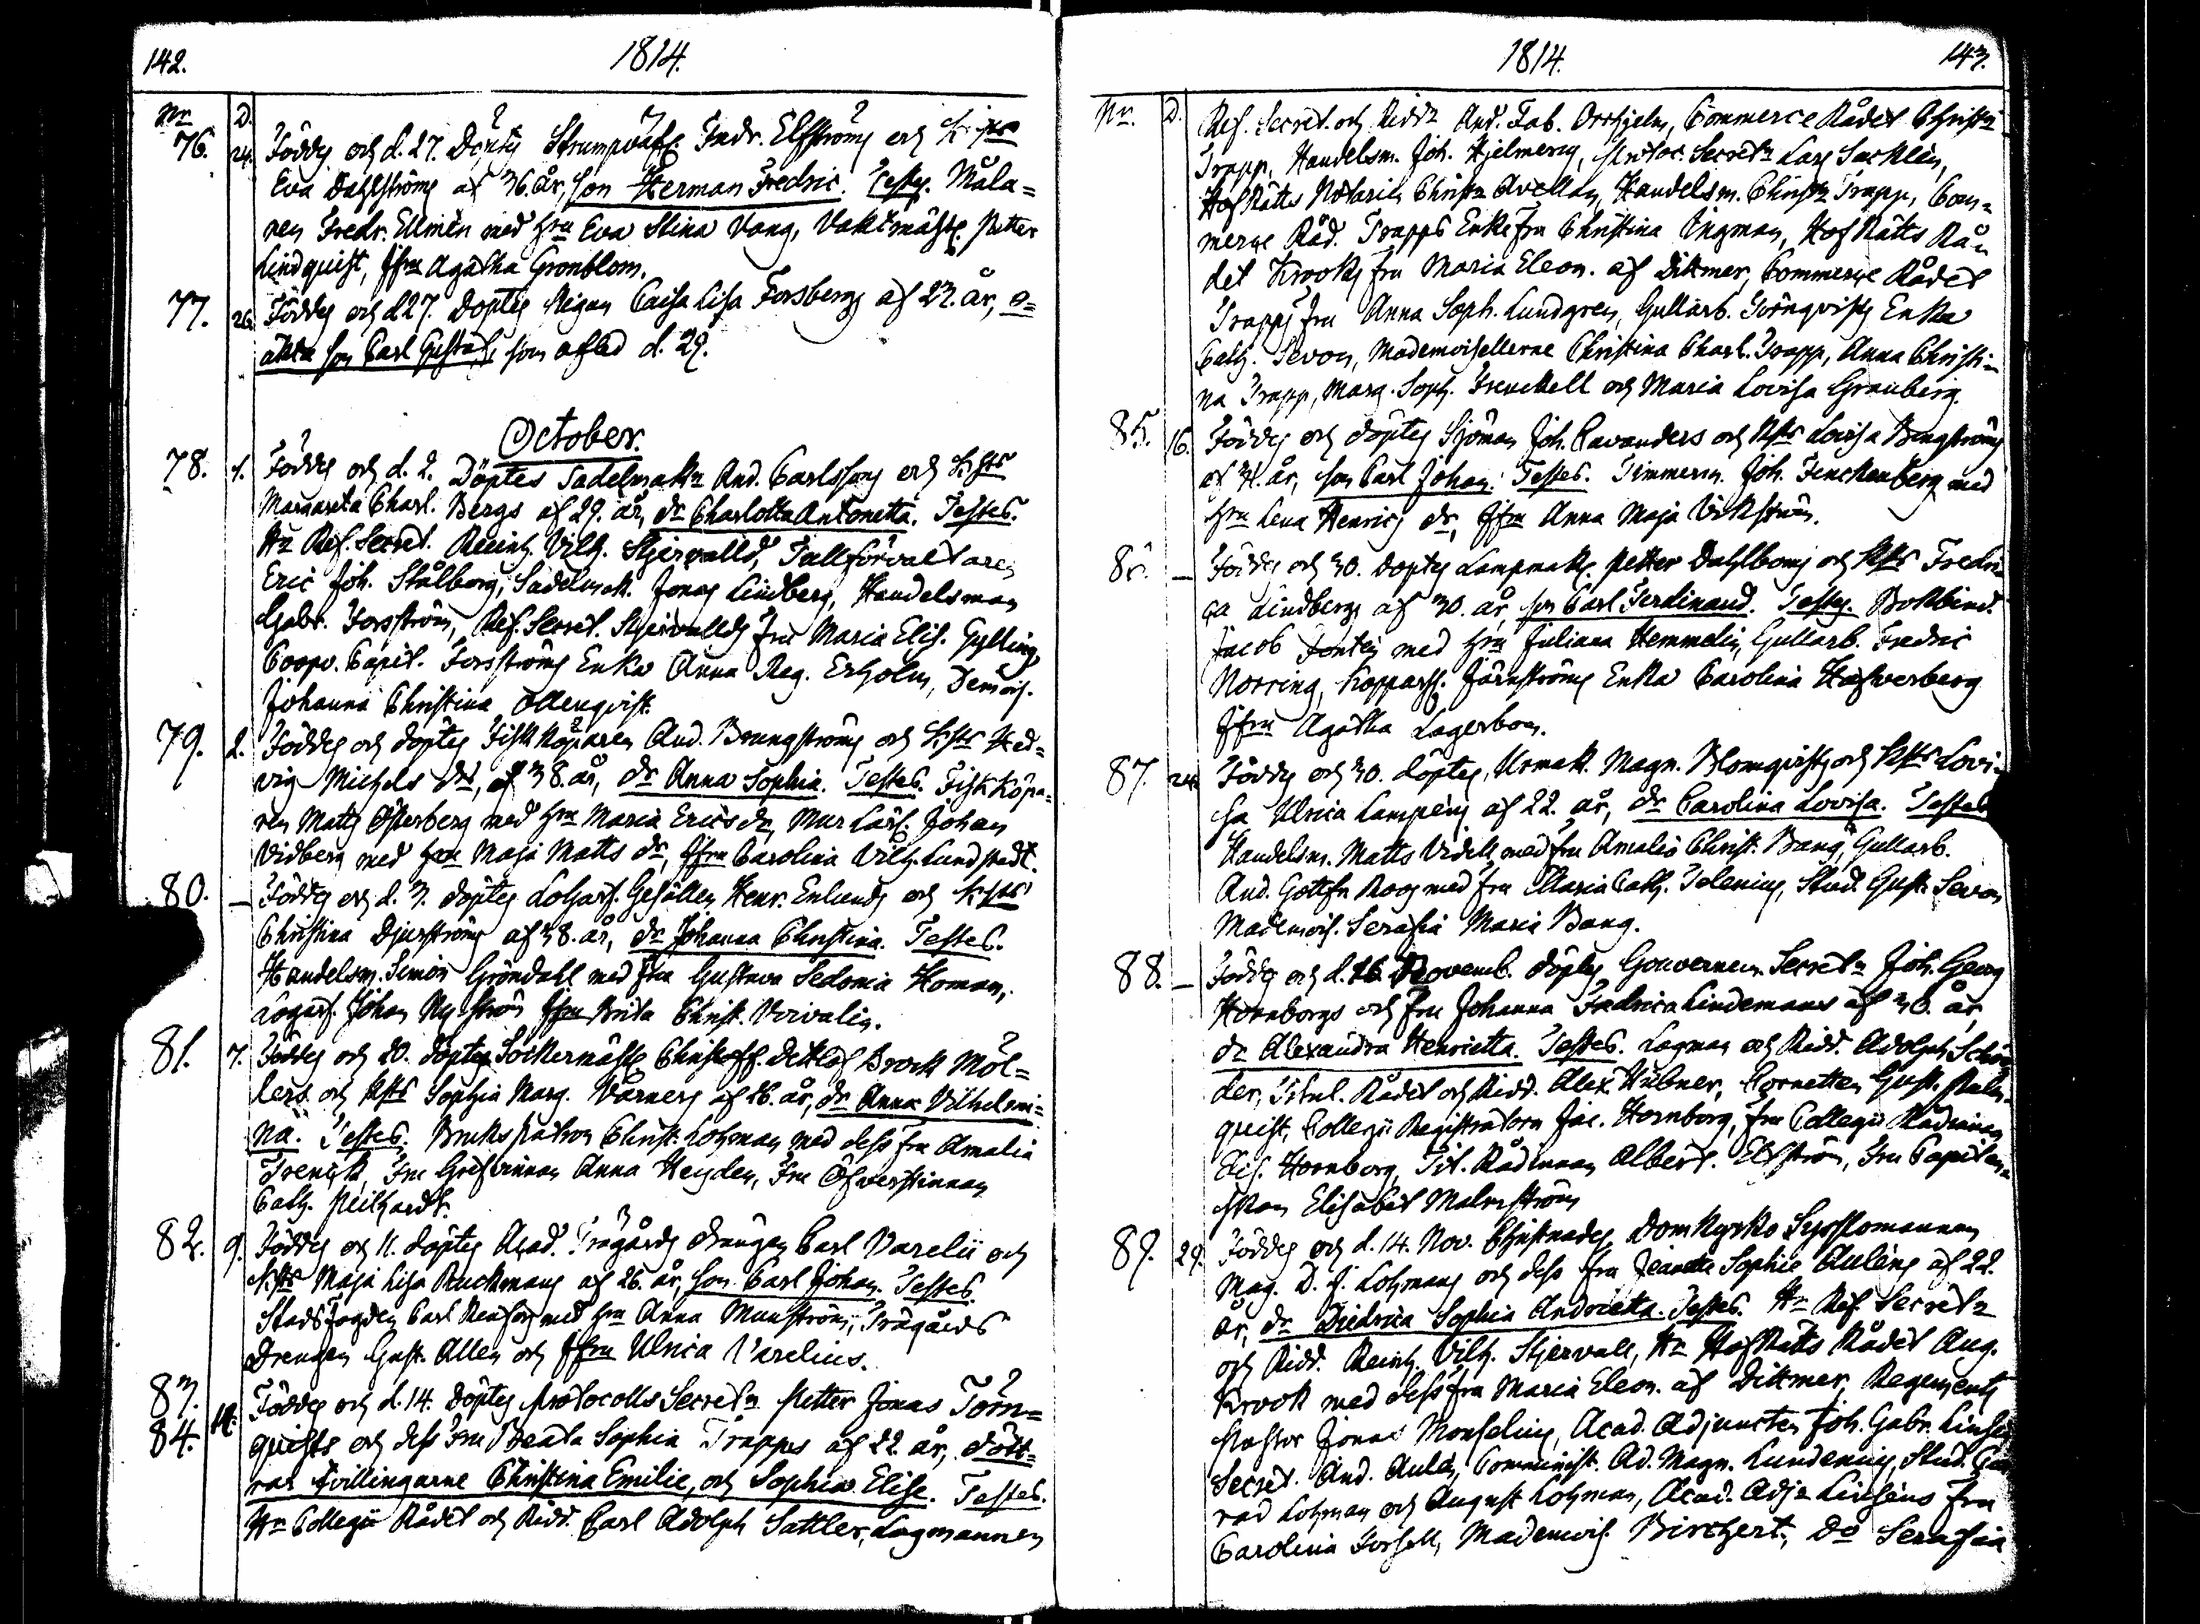 142. 1814.
Nr D.
76. 24. Föddes och d. 27. Döptes Strumpväfv. Fredr. Elfströms och h:stru
Eva Dahlströms af 36. år, son Herman Fredric. Testes. Måla=
ren Fredr. Ellmén med hru Eva Stina Vang, Vaktmäst. Petter
Lindquist, Jfru Agatha Gronblom.
77. 26. Föddes och d 27. Döptes Pigan Caisa Lisa Forsbergs af 27. år, o=
äkta son Carl Gustaf, som afled d. 29.
October.
78. 1. Föddes och d. 2. Döptes Sadelmakn And. Carlssons och h:stru
Margareta Charl. Bergs af 29. år, dr Charlotta Antonetta. Testes.
Hr Ref. Secret. Reinh. Vilh. Stjervalld, Tullförvaltaren
Eric Joh. Stålberg, Sadelmak. Jonas Lindberg, Handelsman
Gabr. Forsström, Ref. Secret. Stjervalldz Fru Maria Elis. Gylling,
Coopv. Capit. Forsströms Enka Anna Reg. Erholm, Demois.
Johanna Christina Ollenqvist.
79. 2. Föddes och döptes Fiskköparen And. Brungströms och h:stru Hed=
vig Michels dr, af 38. år, dr Anna Sophia. Testes. Fiskköpa=
ren Matts Österberg med hru Maria Erics dr, Murlärl. Johan
Vidberg med hru Maja Matts dr, Jfru Carolina Vilh. Lundstedt.
80. — Föddes och d. 3. döptes Lohgarf. Gesällen Henr. Enlunds och h:stru
Christina Djurströms af 38. år, dr Johanna Christina. Testes.
Handelsm. Simon Gröndahl med Fru Gustava Sedonia Homan,
Johan Nyström Jfru Brita Christ. Vorvalin.
81. 7. Föddes och 20. döptes Sockermäst. Christoff. Detlof Brock Möl=
lers och h:stru Sophia Marg. Varners af 26. år, dr Anna Vilhelmi=
na. Testes. Brukspatron Christ. Lohman med dess fru Amalia
Trenck, Fru Grefvinnan Anna Heyden, Fru Öfverstinnan
Cath. Peithardt.
82. 9. Föddes och 11. döptes Acad. Trägårds drängen Carl Varelii och
h:stru Maja Lisa Ruckmans af 26. år, son Carl Johan. Testes.
StadsFogden Carl Renfors med hru Anna Munström, Trägårds
Drengen Gust. Allen och Jfru Ulrica Varelius.
83.
84. 12. Föddes och d. 14. Döptes Protocolls Secretn Petter Jonas Törn=
quists och dess Fru Beata Sophia Trapps af 22 år, dött=
rar tvillingarne Christina Emilie, och Sophia Elise. Testes.
Hr Collegii Rådet och Ridd. Carl Adolph Sattler, Lagmannen
1814. 143.
Nr. D.
Ref. Secret. och Riddn And. Fab. Orrhjelm, Commerce Rådet Christi
Trapp, Handelsm. Joh. Hjelmerus, Protoc. Secretn Lars Sacklén,
HofRätts Notarien Christn Avellan, Handelsm. Christn Trapp, Com=
merce Råd. Trapps Enkefru Christina Ingman, HofRätts Rå=
det Krooks fru Maria Eleon. af Dittmer, Commerce Rådet
Trapps fru Anna Soph. Lundgren, Gullarb. Törnqvists Enka
Cath. Sevon, Mademoisellerne Christina Charl. Trapp, Anna Christi=
na Trapp, Marg. Soph. Frenckell och Maria Lovisa Granberg.
85. 16. Föddes och döptes Sjöman Joh. Cavanders och h:stru Lovisa Bengströms
af 31. år, son Carl Johan. Testes. Timmerm. Joh. Fenckenberg med
hru Lena Henrics dr, Jfru Anna Maja Vikström.
86. — Föddes och 30. döptes Lampmak. Petter Dahlboms och h:stru Fredri=
ca Lindbergs af 30. år, son Carl Ferdinand. Testes. Bokbind.
Jacob Fontin med hru Juliana Hemmelin, Gullarb. Fredric
Norring, Kopparsl. Järnströms Enka Carolina Hasverberg
Jfru Agatha Lagerbom.
87. 24. Föddes och 30. döptes, Urmak. Magn. Blomqvists och h:stru Lovi=
sa Ulrica Lampéns af 22. år, dr Carolina Lovisa. Testes
Handelsm. Matts Videll med fru Amalia Christ. Bang, Gullarb.
And. Gottfr Roos med fru Maria Cath. Telenius, Stud. Gust. Sevon
Mademois. Serafia Maria Bang.
88. — Föddes och d. 16. Novemb. döptes Gouvernem. Secretn Joh. Georg
Hornborgs och Fru Johanna Fredrica Lindemans af 36. år,
dr Alexandra Henrietta. Testes. Lagman och Ridd. Adolph Schön
der, Titul. Rådet och Ridd. Alex. Hübner, Cornetten Gust. Palm=
quist, Collegii Registratorn Jac. Hornborg, fru Collegii Rådinnan
Elis. Hornborg, Tit. Rådinnan Albert. Ekström, Fru Capiten=
skan Elisabet Malmström
89. 29. Föddes och d. 14. Nov. Christnades DomKyrko Sysslomannen
Mag. D. J. Lohmans och dess fru Jeanette Sophie Auléns af 22.
år, dr Diedrica Sophia Andrietta. Testes. Hr Ref. Secretn
och Ridd. Reinh. Vilh. Stjervall, Hr HofRätts Rådet Aug.
Krook med dess fru Maria Eleon. af Dittmer, Regements
Pastor Jonas Monselius, Acad. Adjuncten Joh. Gabr. Linsén
Secret. And. Aulén, Comminist. Ad. Magn. Lundenius, Stud. Con
rad Lohman och August Lohman, Acad. Adjn Linséns fru
Carolina Forsell, Mademois. Birchert, Do Serafia